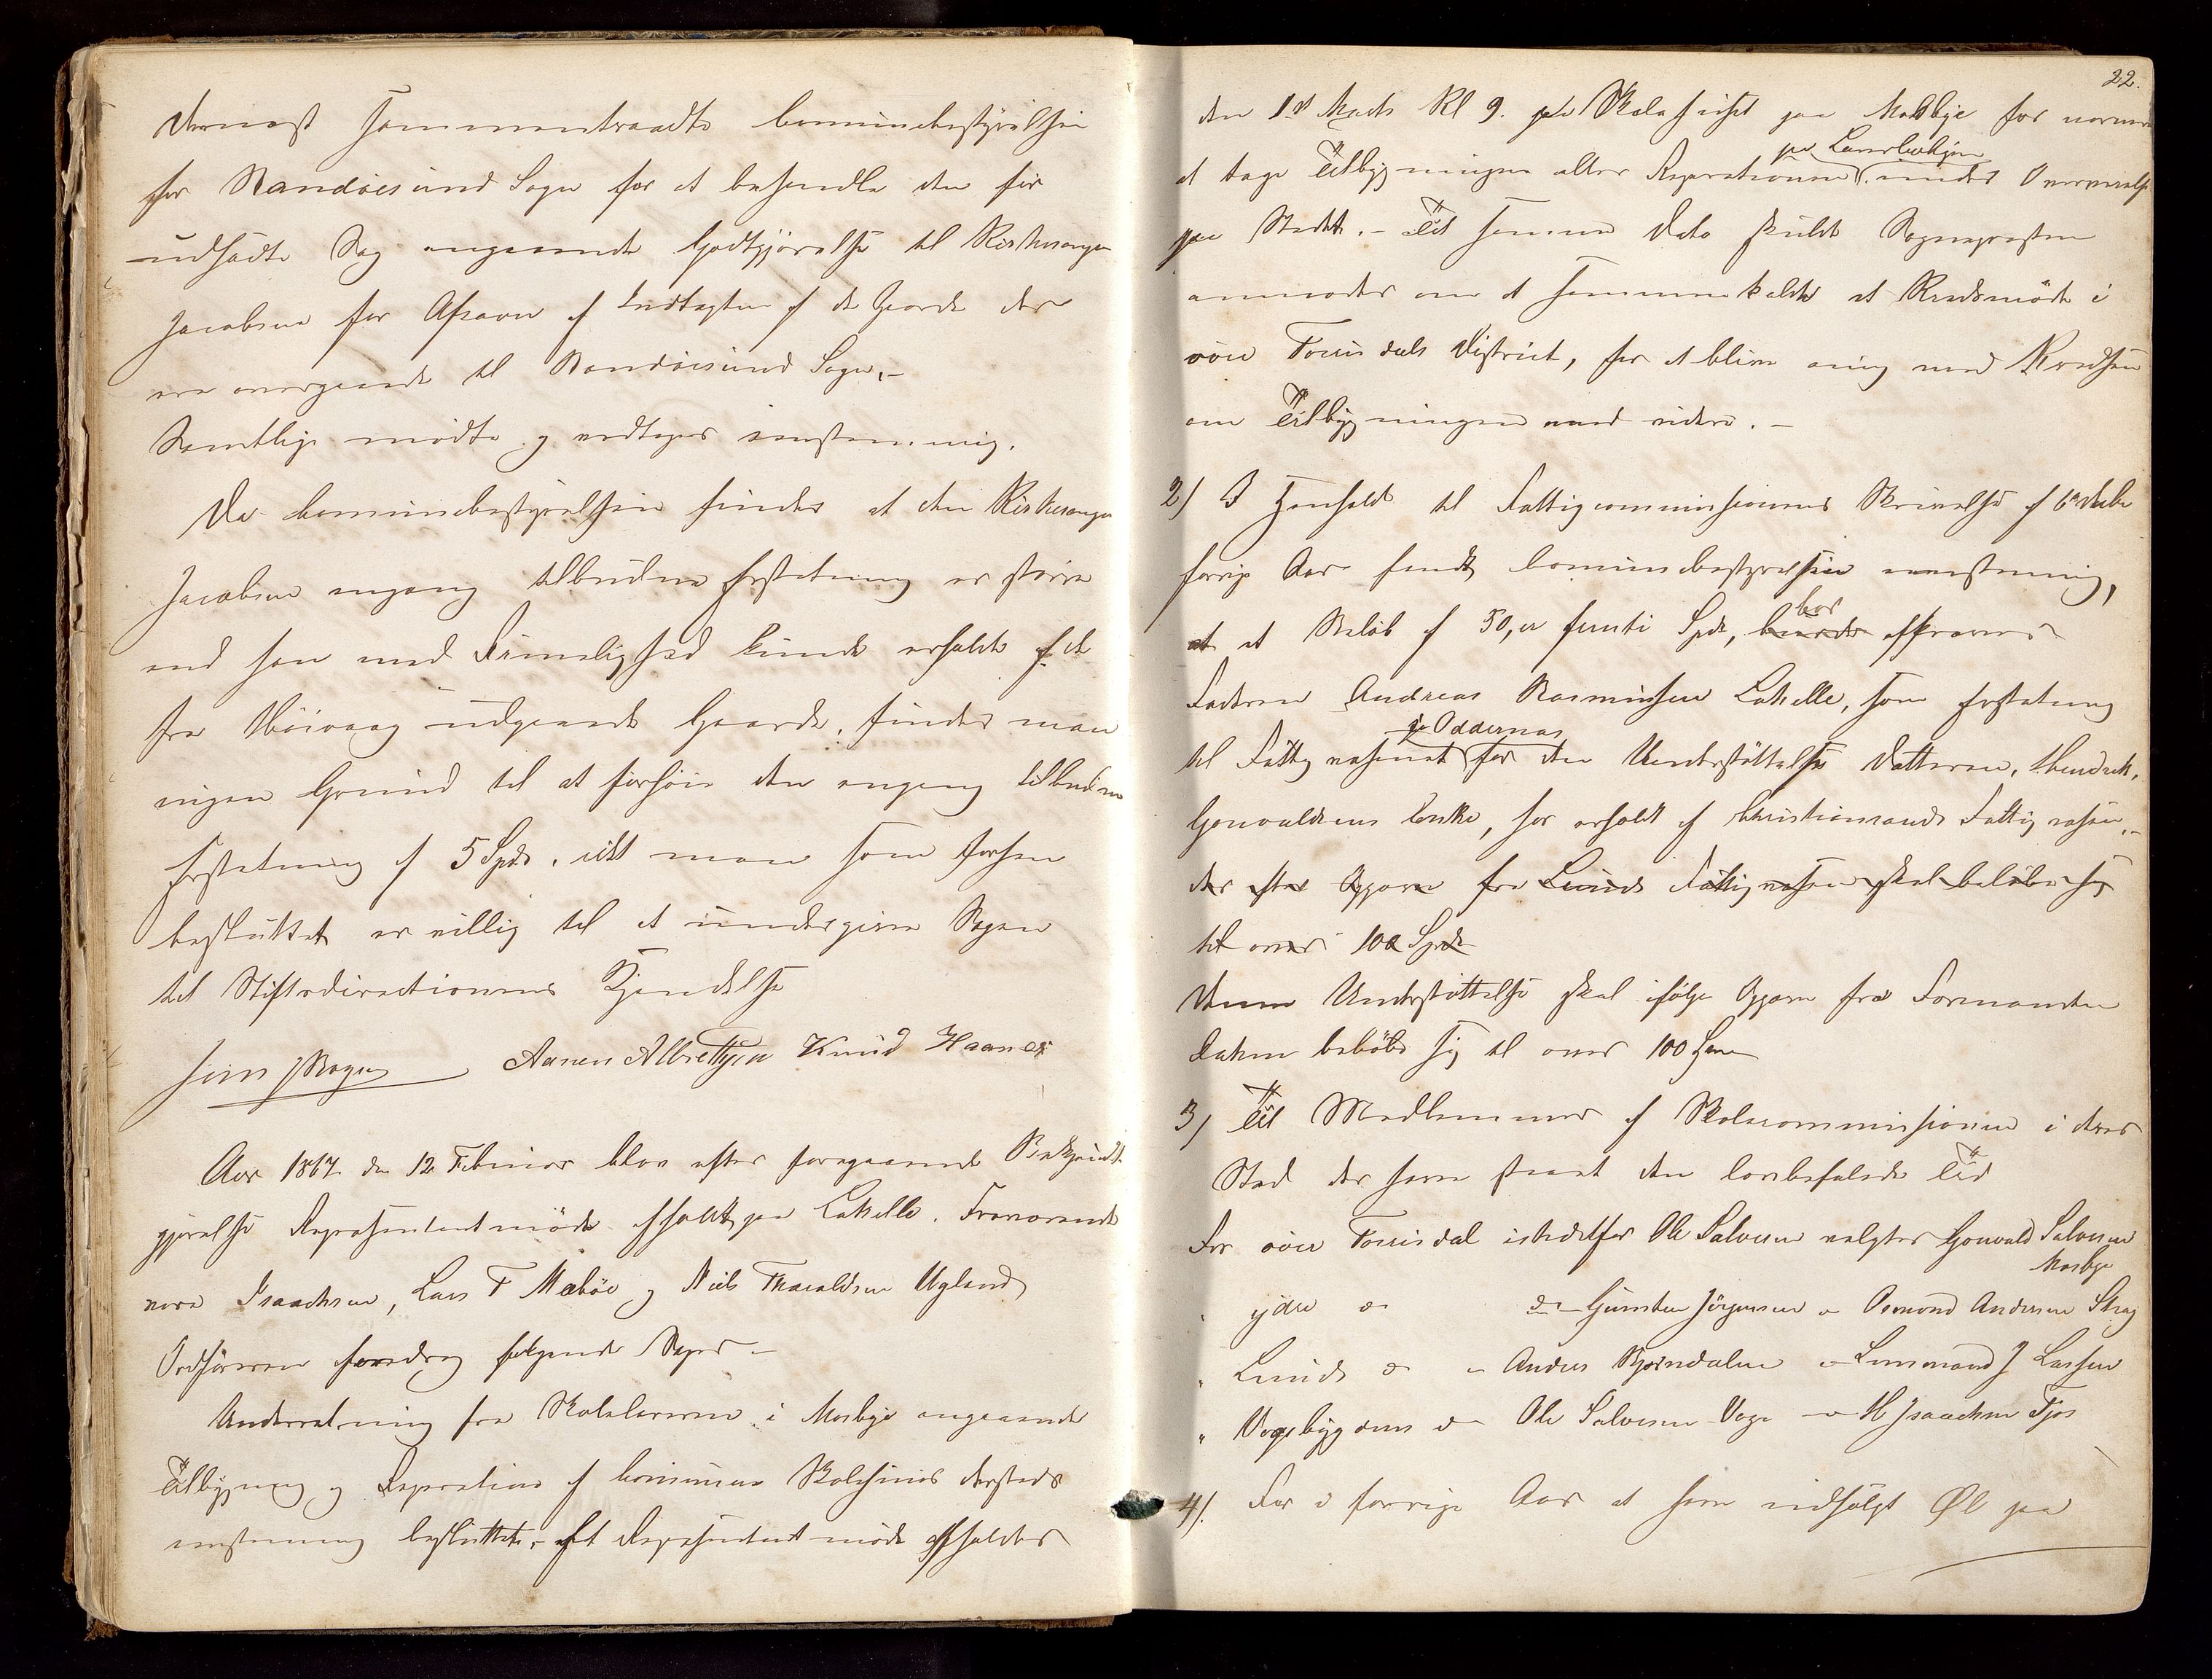 Dernæst sammentraadte Communebestyrelsen
for Randøesund Sogn for at behandle den før
udsadte Sag angaaende Godtgjørelse til Kirkesanger
Jacobsen for Afsavn af Indtægten af de Gaarde der
ere overgaaede til Randøesund Sogn. -
Samtlige mødte og vedtoges eenstemmig.
Da Communebestyrelsen finder at den Kirkesanger
Jacobsen engang tilbudne Erstatning er større
end han med Rimelighed kunde erholdt af de
fra Høivaag udgaaede Gaarde, finder man
ingen Grund til at forhøie den engang tilbudne
Erstatning af 5 Spdr. idet man som forhen
besluttet er villig til at undergive Sagen
til Stiftsdirectionens Kjendelse
Aanen Albrethsen Knud Haanes
Aar 1867 den 12 Februar blev efter foregaaende Bekjendt
gjørelse Repræsentantmøde afholdt paa Lahelle. Fraværende
vare Isaachsen, Lars T Mæbøe og Niels Tharaldsen Ugland
Ordføreren foredrog følgende Sager -
Underretning fra Skolelæreren i Mosbye angaaende
Tilbygning og Reparation af Communens Skolehuus dersteds
eenstemmig besluttet. - At Repræsentantmøde afholdes
22.
den 1ste Marts Kl 9. paa Skolehuset paa Mosbye for nærmere
paa Landboehjem
at tage Tilbygningen eller Reparationen under Overveielse
paa Stedet. - Til samme Dato skulde Sognepræsten
anmodes om at sammenkalde et Kredsmøde i
øvre Torrisdals District, for at blive enig med Kredsen
om Tilbygningen med videre. -
2) I Henhold til Fattigcommissionens Skrivelse af 6te Decbr
forrige Aar fandt Communebestyrelsen eenstemmig,
bør
at et Beløb af 50, er femti Spdr, burde afkræves
Faderen Andreas Rasmussen Lahelle, som Erstatning
i Oddernes
til Fattigvæsenet for den Understøttelse Datteren,
Gonvaldsens Enke, har erholdt af Christiansands Fattigvæsen, -
der efter Opgave fra Lunds Fattigvæsen skal beløbe sig
til over 100 Spdr
Denne Understøttelse skal ifølge Opgave fra Formanden
beløbe sig til over 100
3) Til Medlemmer af Skolecommissionen i deres
Sted der have staaet den lovbefalede Tid
For øvre Torrisdal istedetfor Ole Salvesen valgtes Gonvald Salvesen
Mosbye
" ydre do do Gunsten Jörgensen " Osmund Andersen Stray
" Lunds do " Anders Bjørndalen " Lensmand J Larsen
" Vogsbygdens do Ole Salvesen Voge " H Isaachsen Fjos
4). For i forrige Aar at have udsolgt Øl paa